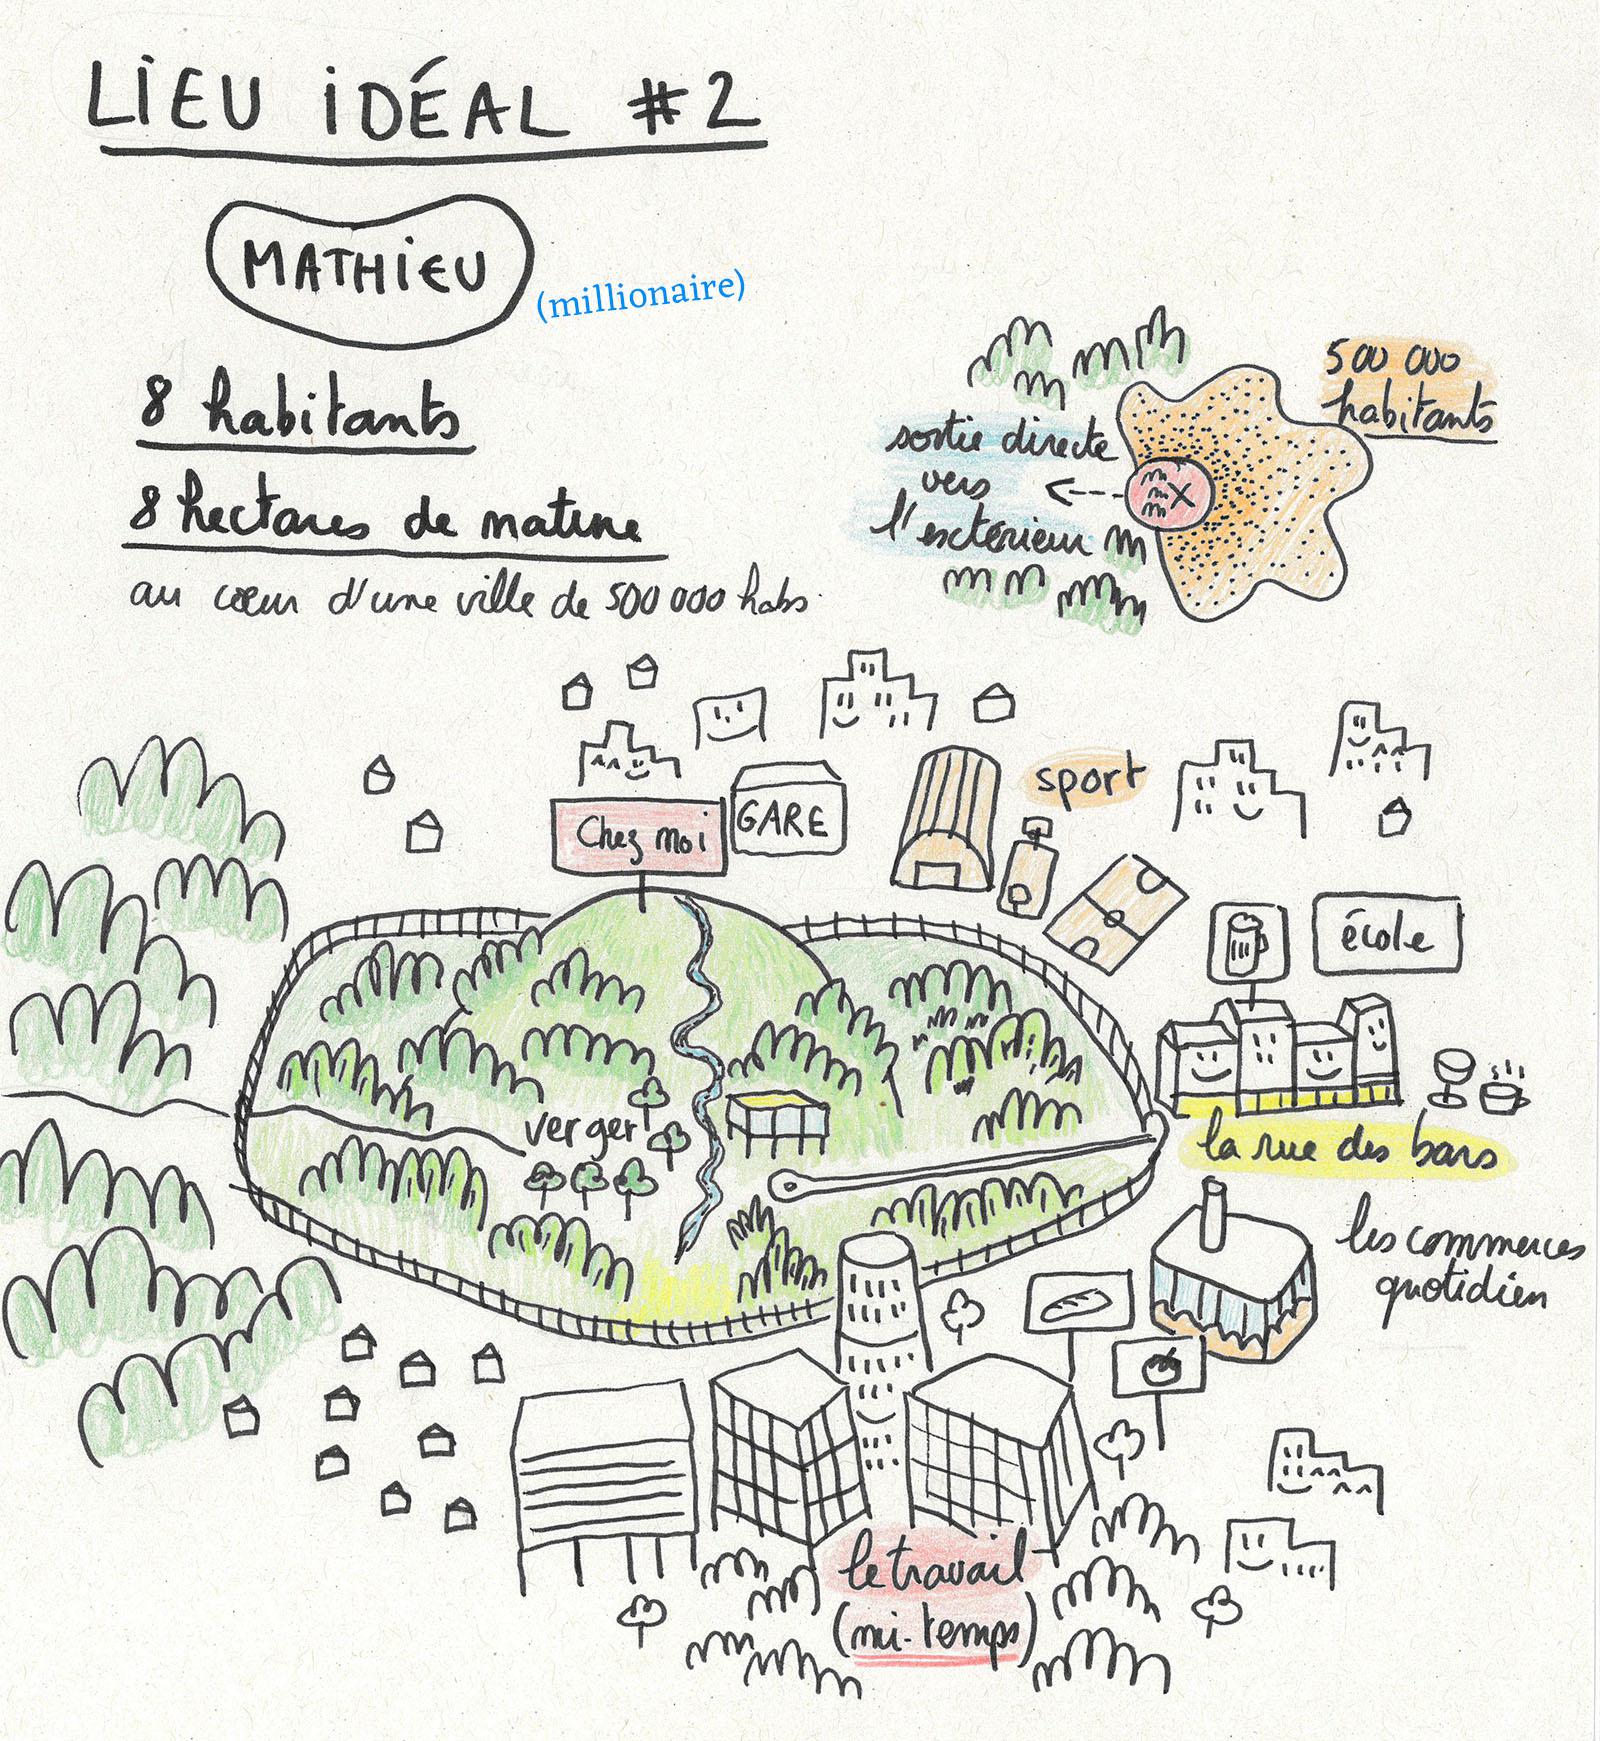 LIEU IDÉAL #2
MATHIEU
(millionaire)
8 habitants
8 hectares de nature
au cœur d'une ville de 500 000 habs.
500 000
habitants
sortie directe
vers
l'extérieur
sport
Chez moi
GARE
école
verger
la rue des bars
les commerces
quotidien
le travail
(mi-temps)